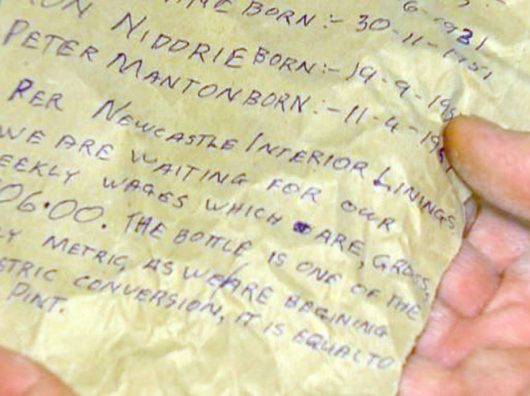 BORN:- 30-11-1951
NIDDRIE BORN:- 19-9-19
PETER MANTON BORN:- 11-4-19
PER NEWCASTLE INTERIOR LININGS
WE ARE WAITING FOR OUR
WEEKLY WAGES WHICH ARE, GROSS,
06.00. THE BOTTLE IS ONE OF THE
LY METRIC, AS WE ARE BEGINING
ETRIC CONVERSION, IT IS EQUAL TO
PINT.